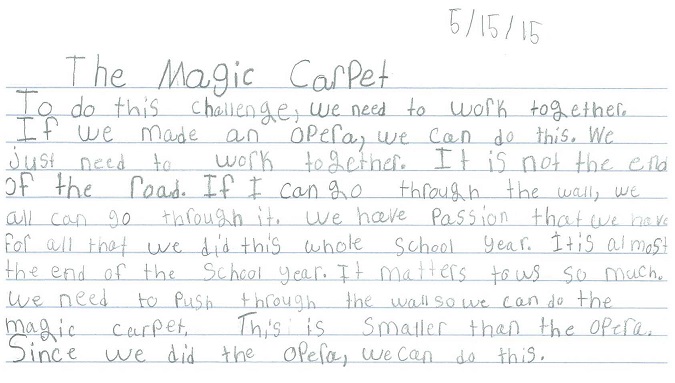 5/15/15
The Magic Carpet
To do this challenge, we need to work together.
If we made an opera, we can do this. We
just need to work together. It is not the end
of the road. If I can go through the wall, we
all can go through it. We have passion that we have
for all that we did this whole school year. It is almost
the end of the school year. It matters to us so much.
We need to push through the wall so we can do the
magic carpet. This is smaller than the opera.
Since we did the opera, we can do this.